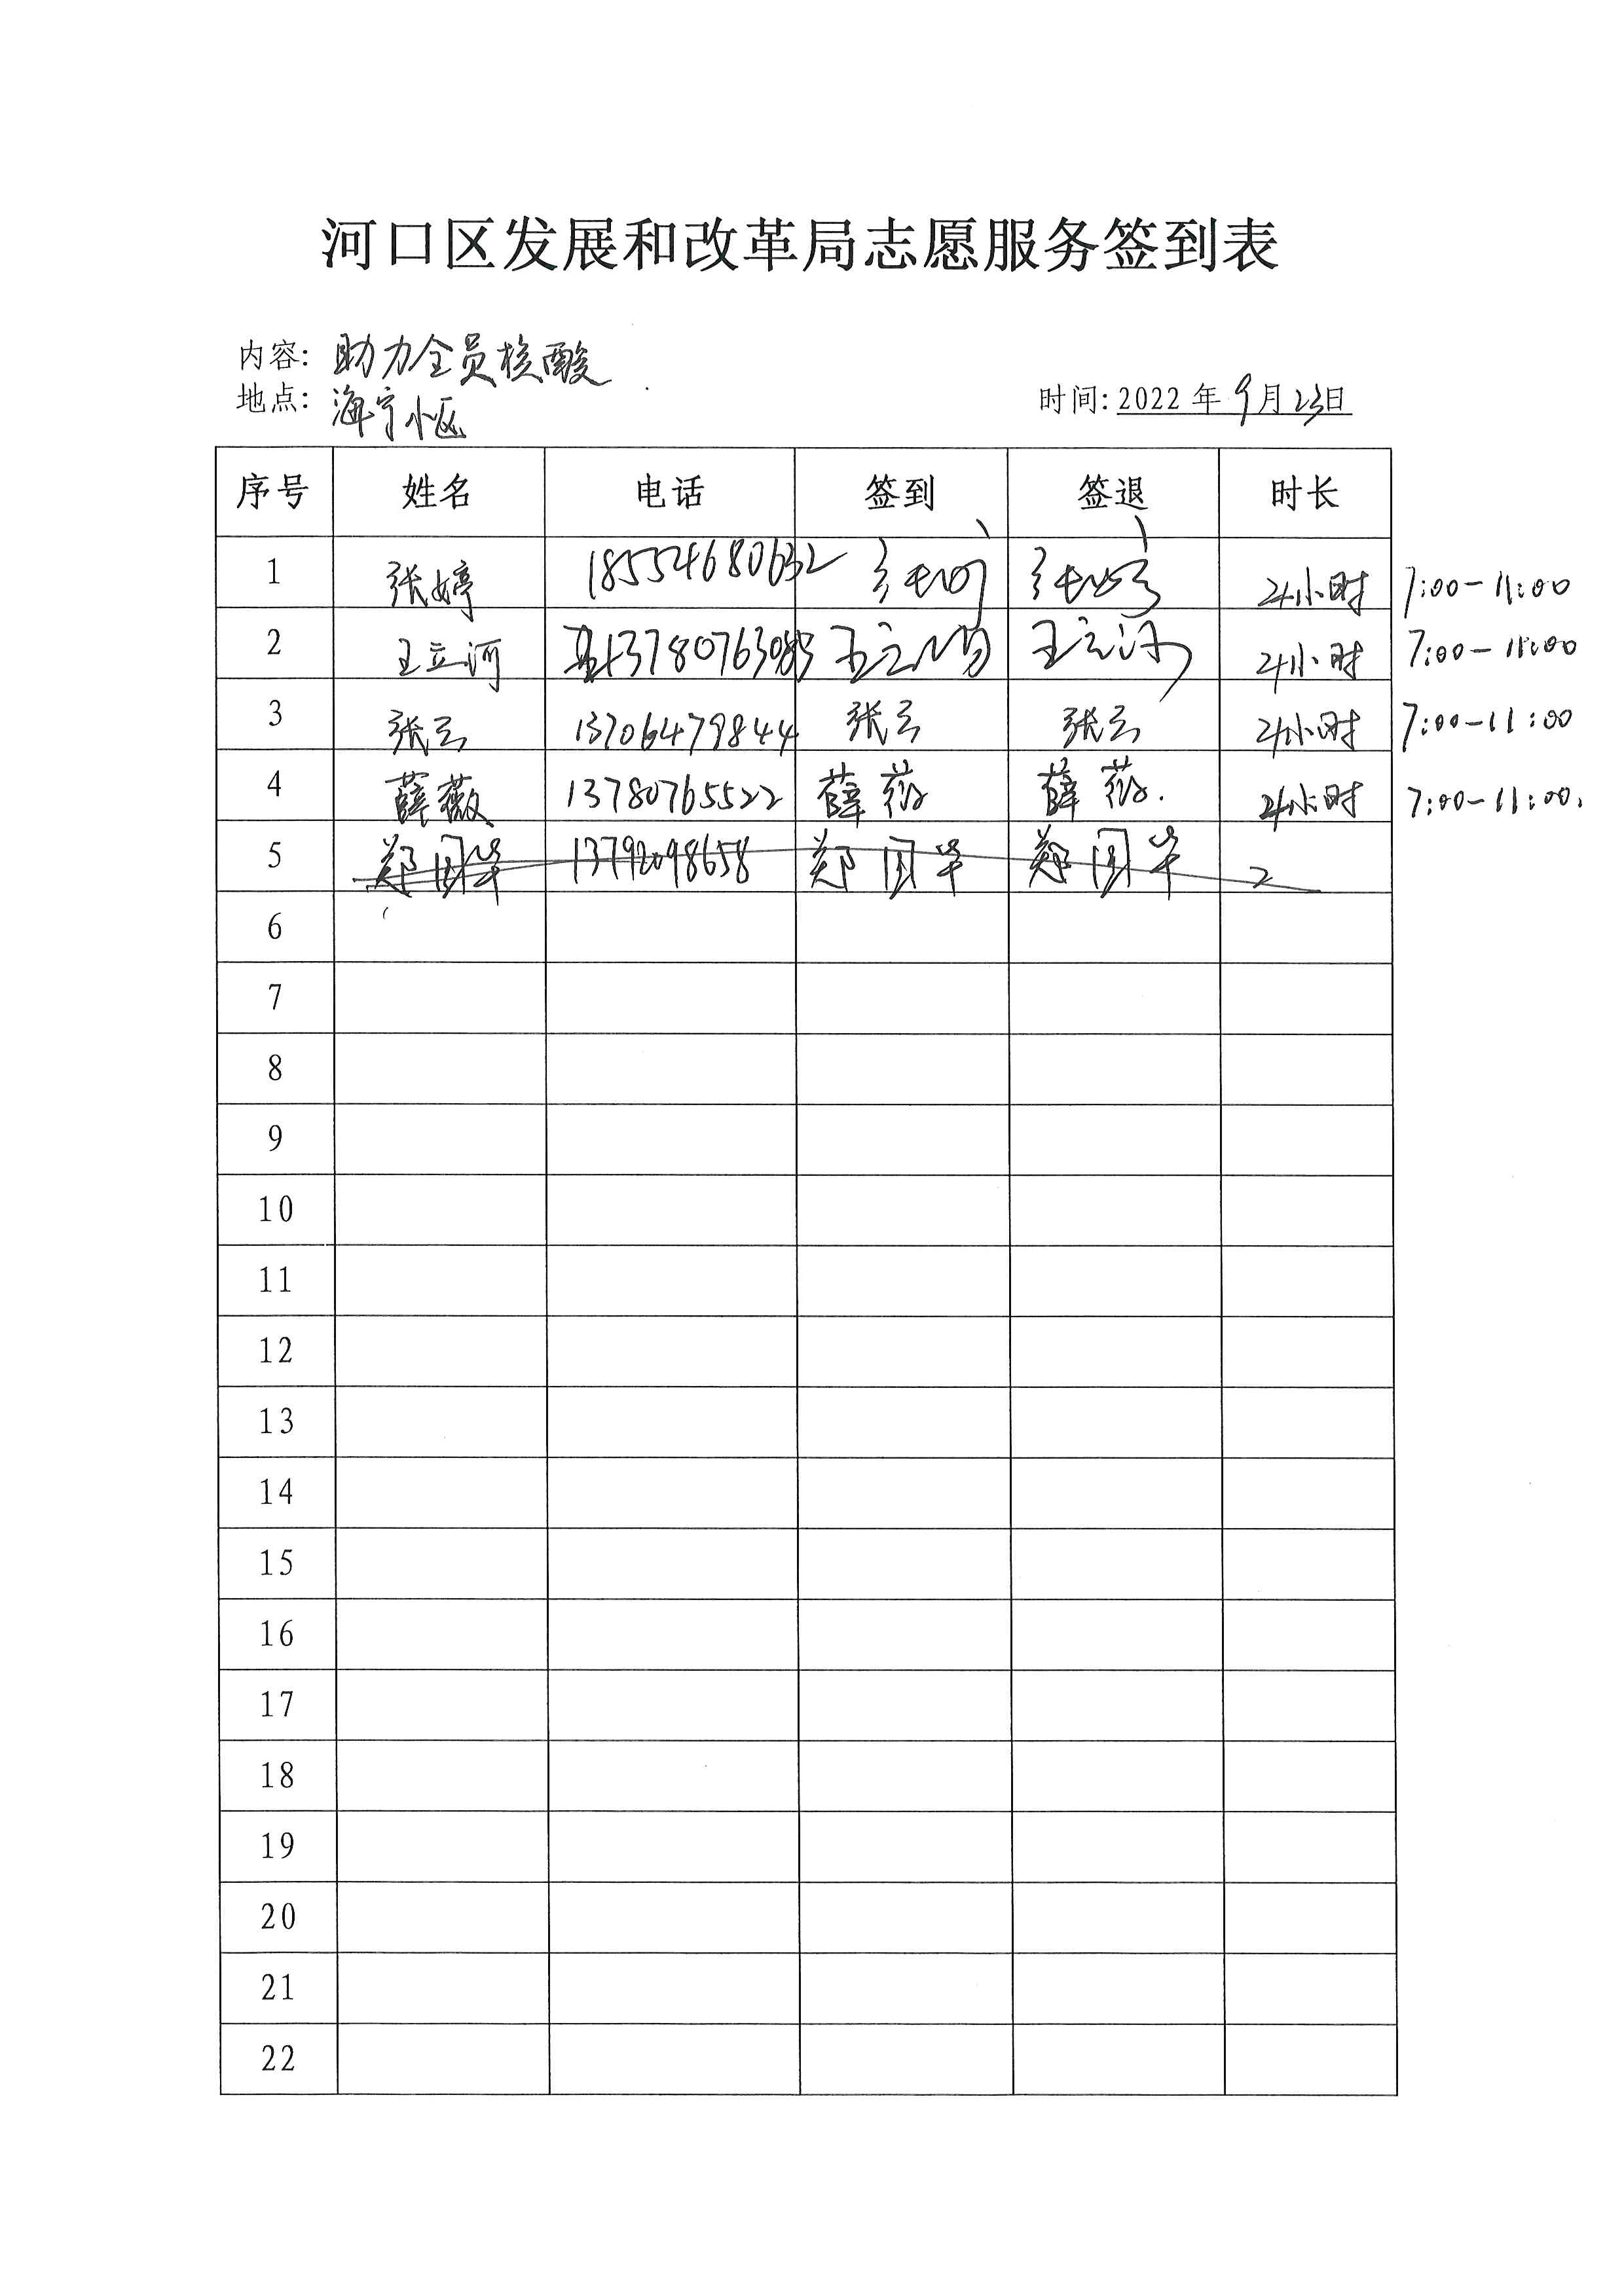 河口区发展和改革局志愿服务签到表
内容: 助力全员核酸
地点: 海宁小区
时间: 2022年9月23日
序号 姓名 电话 签到 签退 时长
1 张婷 18554680632 张婷 张婷 4小时 7:00-11:00
2 王立河 王立河 王立河 4小时 7:00-11:00
3 张云 13706479844 张云 张云 4小时 7:00-11:00
4 薛薇 13780765522 薛薇 薛薇. 4小时 7:00-11:00.
5 郑国华 13792098658 郑国华 郑国华 2
6
7
8
9
10
11
12
13
14
15
16
17
18
19
20
21
22